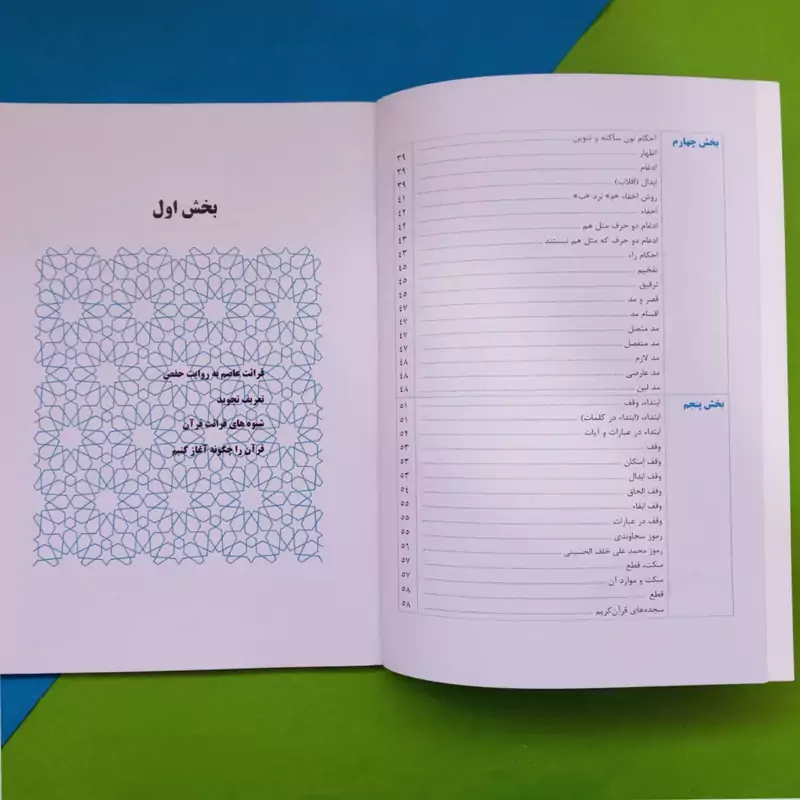 بخش چهارم
احکام نون ساکنه و تنوین ۳۹
اظهار ۳۹
ادغام ۳۹
ابدال (اقلاب) ۴۱
روش اخفاء «م» نزد «ب» ۴۲
اخفاء ۴۲
ادغام دو حرف مثل هم ۴۳
ادغام دو حرف که مثل هم نیستند ۴۳
احکام راء ۴۵
تفخیم ۴۵
ترقیق ۴۵
قصر و مد ۴۷
اقسام مد ۴۷
مد متصل ۴۷
مد منفصل ۴۷
مد لازم ۴۸
مد عارضی ۴۸
مد لین ۴۸
بخش پنجم
ابتداء، وقف ۵۱
ابتداء، (ابتداء در کلمات) ۵۱
ابتداء در عبارات و آیات ۵۲
وقف ۵۳
وقف إسکان ۵۳
وقف ابدال ۵۳
وقف الحاق ۵۴
وقف ابقاء ۵۵
وقف در عبارات ۵۵
رموز سجاوندی ۵۵
رموز محمد علی خلف الحسینی ۵۶
سکت، قطع ۵۷
سکت و موارد آن ۵۷
قطع ۵۸
سجده‌های قرآن‌کریم ۵۸
بخش اول
قرائت عاصم به روایت حفص
تعریف تجوید
شیوه های قرائت قرآن
قرآن را چگونه آغاز کنیم